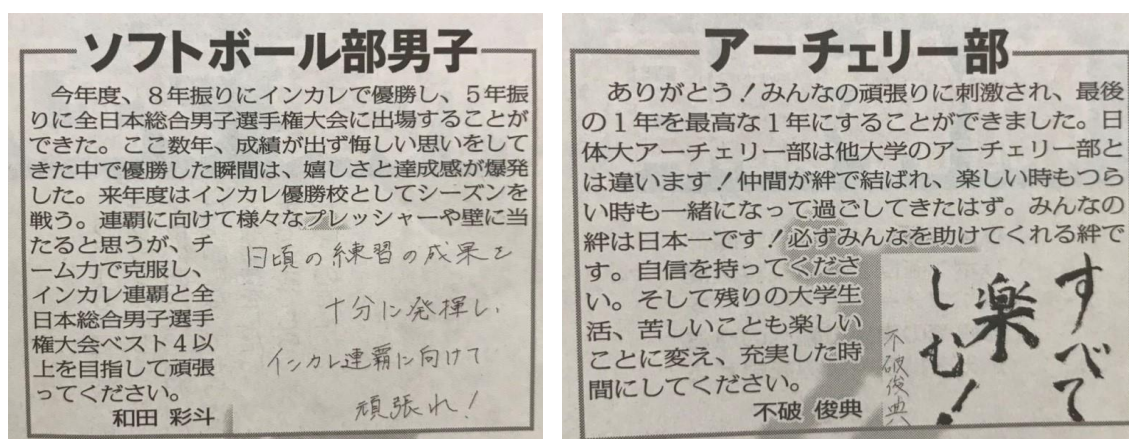 ソフトボール部男子
今年度、８年振りにインカレで優勝し、５年振
りに全日本総合男子選手権大会に出場することが
できた。ここ数年、成績が出ず悔しい思いをして
きた中で優勝した瞬間は、嬉しさと達成感が爆発
した。来年度はインカレ優勝校としてシーズンを
戦う。連覇に向けて様々なプレッシャーや壁に当
たると思うが、チ
ーム力で克服し、
インカレ連覇と全
日本総合男子選手
権大会ベスト４以
上を目指して頑張
ってください。
和田 彩斗
日頃の練習の成果を
十分に発揮し、
インカレ連覇に向けて
頑張れ！
アーチェリー部
ありがとう！みんなの頑張りに刺激され、最後
の１年を最高な１年にすることができました。日
体大アーチェリー部は他大学のアーチェリー部と
は違います！仲間が絆で結ばれ、楽しい時もつら
い時も一緒になって過ごしてきたはず。みんなの
絆は日本一です！必ずみんなを助けてくれる絆で
す。自信を持ってくださ
い。そして残りの大学生
活、苦しいことも楽しい
ことに変え、充実した時
間にしてください。
不破 俊典
すべて
楽
しむ！
不破俊典